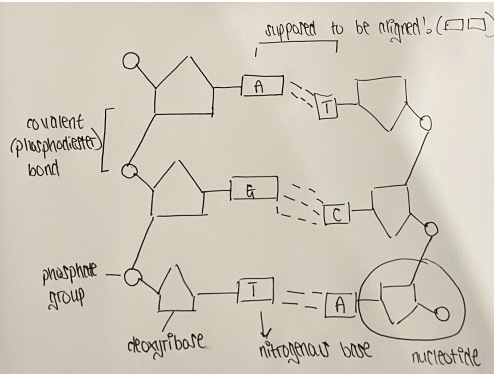 supposed to be aligned! (▭▭)
A
T
covalent
(phosphodiester)
bond
G
C
phosphate
group
T
A
deoxyribose
nitrogenous base
nucleotide